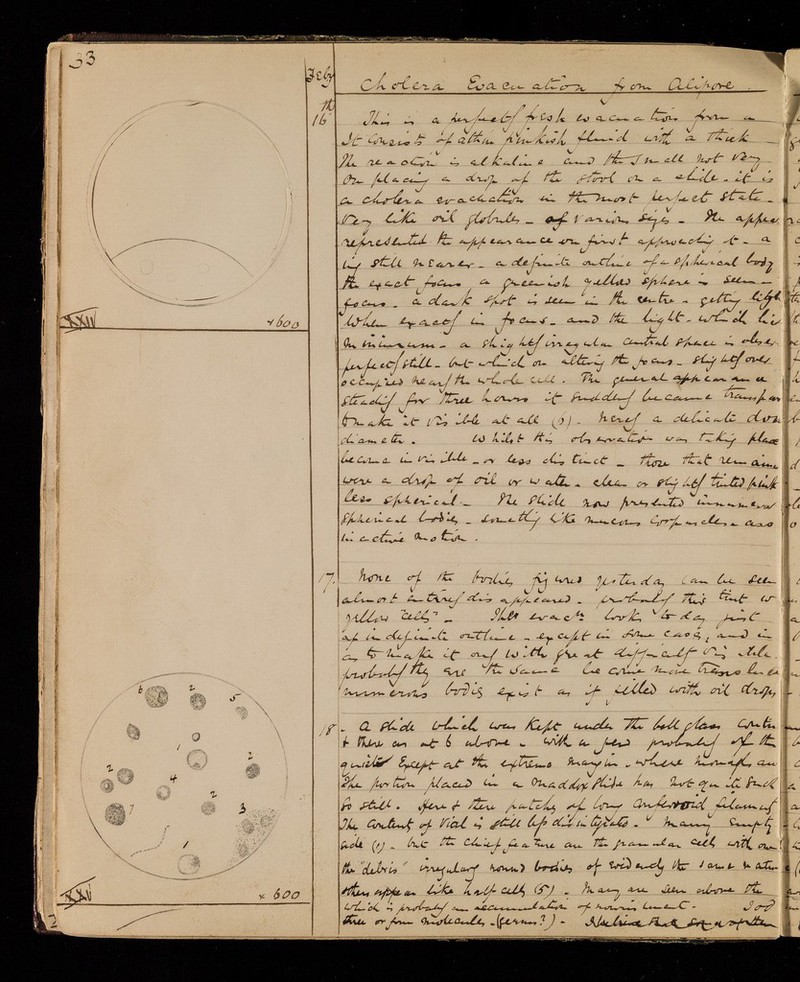 33
Feby
Cholera Evacuation from Alipore.
16th
This is a perfectly fresh evacuation from a
It consists of a thin pinkish fluid with a thick
The reaction is alkaline and the smell not very
On placing a drop of the stool on a slide - it is
a cholera evacuation in the most perfect state -
Very like oil globules - of various sizes - The appea
represented the appearance on first approaching it - a
ing still nearer - a definite outline of a spherical body
the exact focus, a greenish yellow sphere is seen -
focus - a dark spot is seen in the centre - getting
When exactly in focus - and the light - which
minimum - a slightly irregular central space is
perfectly still - but which on altering the focus - slightly
occupied nearly the whole cell. The general appearance
steadily for three hours it suddenly became
to make it visible at all (3). a delicate
diameter. Whilst this observation was taking place
became invisible - or less distinct - those that
were a drop of oil or water - clear or slightly tinted pink
less spherical. - The slide now presented
spherical bodies - something like mucous corpuscles -
in active motion.
XXIV
× 600
17.
None of the bodies figured yesterday can be seen
almost entirely disappeared - probably this tint
yellow "cells" - This evacn looks to day just
of indefinite outline - except in some cases, and in
as to make it only with great difficulty visible
probably they are the same become more
numerous bodies exist as if filled with oil drops
18.
A slide which was kept under the bell glass
& there as at 6 above - with a few probably of the
quiet except at the extreme margin - where monads are
The portion placed in a Maddox slide has not quite such
So still. Here & there patches of long confervoid filaments
The content of Vial is still less disintegrated - Many empty
side (1) - but the chief feature are the granular cells with
the "debris" irregularly round bodies of evidently the same
others appear like half cells (5) - Many are seen above the
which is probably an accumulation of nourishment -
three or four molecules - (germs?) -
6
2
5
1
2
2
4
2
3
7
1
XXV
× 600